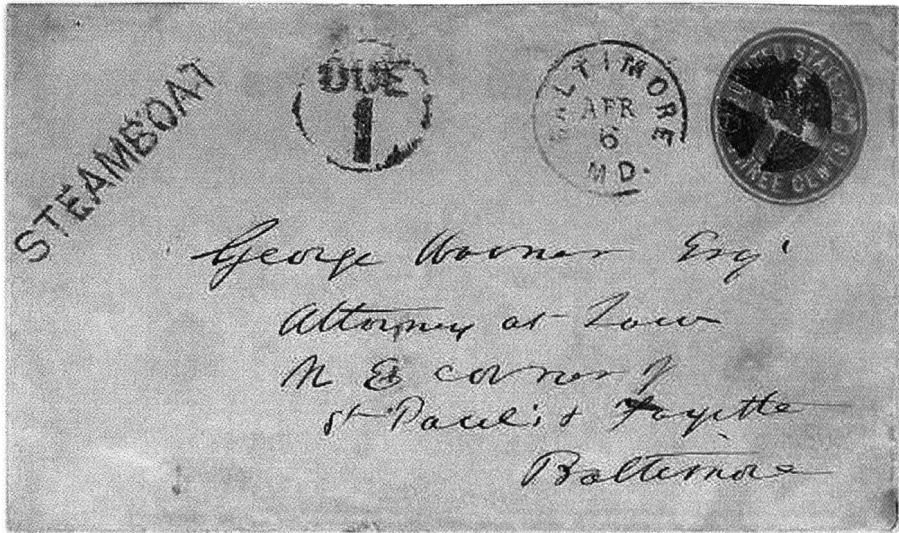 STEAMBOAT
DUE
1
BALTIMORE
APR
6
MD.
UNITED STATES
THREE CENTS
George Warner Esqr
Attorney at Law
N E corner of
St Paul's & Fayette
Baltimore